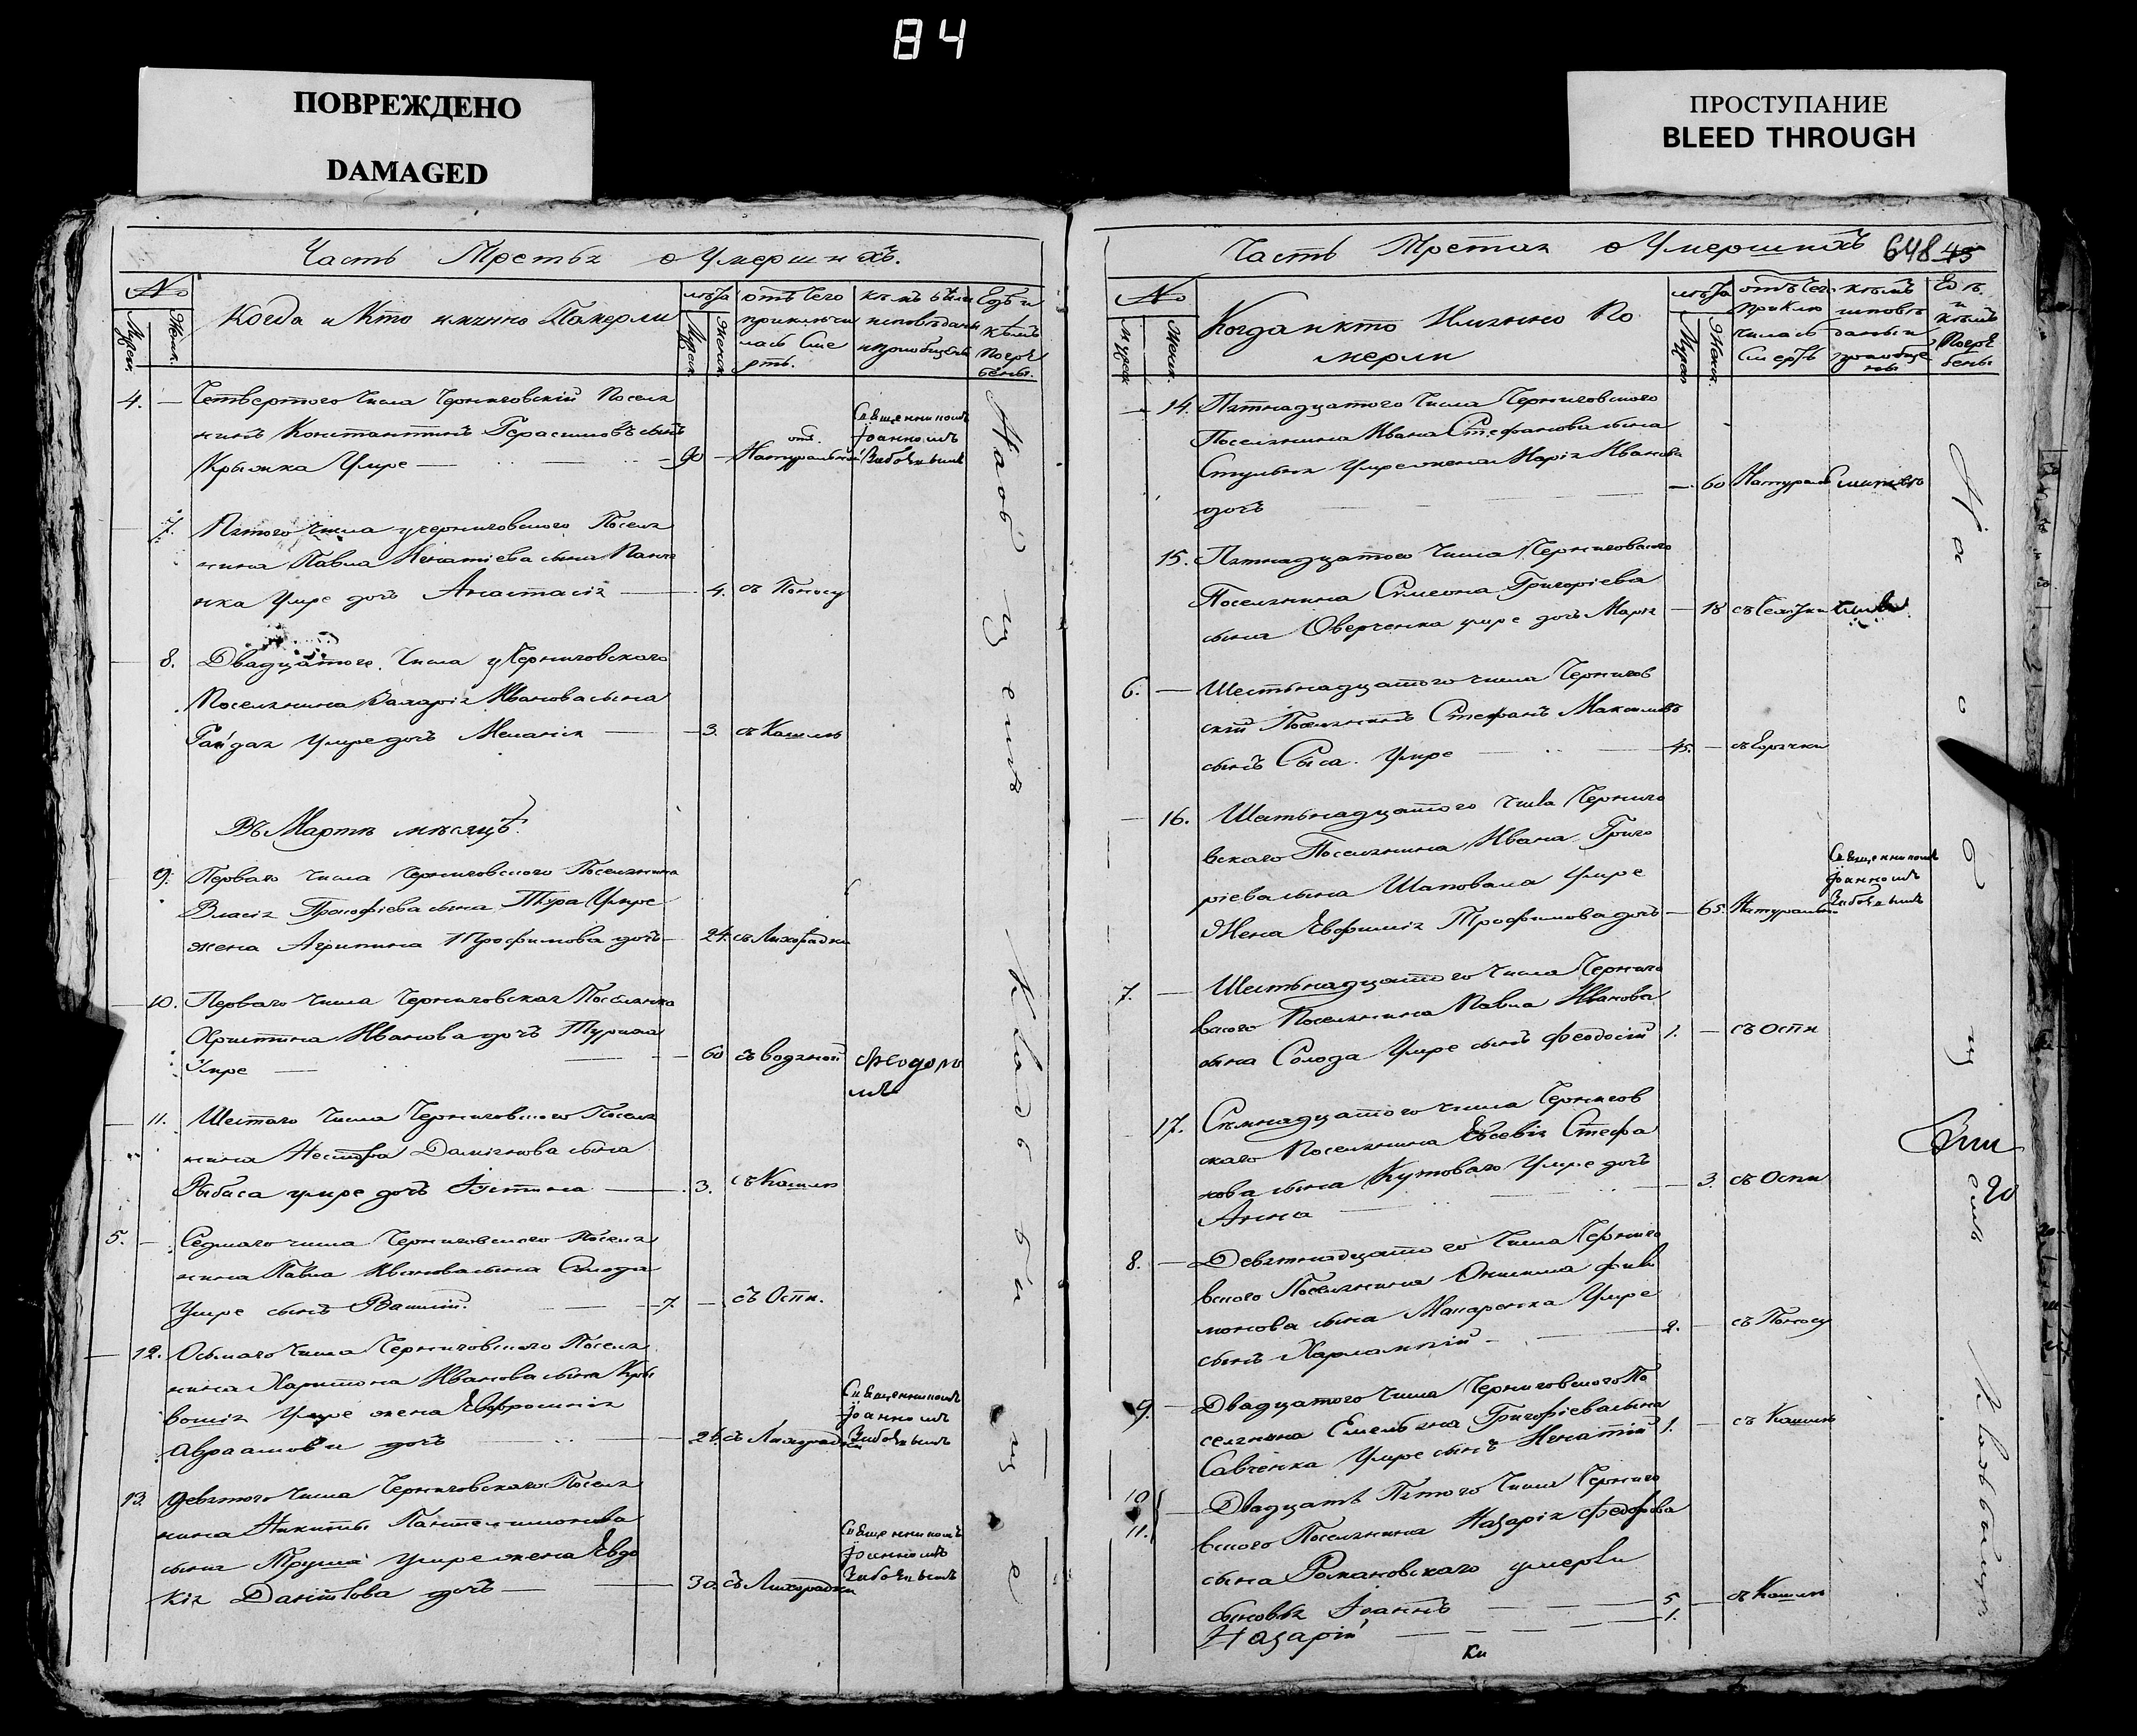 84
ПОВРЕЖДЕНО
DAMAGED
ПРОСТУПАНИЕ
BLEED THROUGH
Часть Третья о Умершихъ.
№
Мужеск.
Женск.
Когда и Кто именно Померли
лѣта
Мужеск.
Женск.
отъ чего
приключи
лась Сме
рть.
кѣмъ
исповѣданы
Гдѣ и
кѣмъ
Погре
бены.
4. — Четвертого Числа Черниговскій Поселя
нинъ Константинъ Герасимовъ сынъ
Крыжка Умре — 90 — отъ Натуральной
Священникомъ
Іоанномъ
— 7. Пятого Числа у черниговского Поселя
нина Павла Игнатіева сына
умре дочь Анастасія — 4. съ Поносу
— 8. Двадцатого Числа у Черниговского
Поселянина Иванова сына
Гайдая Умре дочь Меланія — 3. съ Кашлю
Въ Мартѣ мѣсяцѣ.
9. Перваго Числа Черниговского Поселянина
Власія Прокофіева сына Тура Умре
жена Агрипина Трофимова дочь — 24. съ Лихорадки
— 10. Перваго Числа Черниговская Поселянка
Христина Иванова дочь
Умре — 60 съ водяной
— 11. Шестаго Числа Черниговского Поселя
нина Нестора Даміянова сына
Рыбаса умре дочь Іустина — 3. съ Кашлю
5. — Седмаго числа Черниговского Поселя
нина Павла Иванова сына Солода
Умре сынъ Василій. — 7. — съ Оспи.
— 12. Осьмаго Числа Черниговского Поселя
нина Харитона Иванова сына
Умре жена Евфросинія
Авраамова дочь — 26. съ Лихорадки
Священникомъ
Іоанномъ
13. Девятого Числа Черниговского Поселя
нина Никиты Пантелимонова
сына Труша умре жена Евдо
кія Данілова дочь — 30. съ Лихорадки
Священникомъ
Іоанномъ
На общемъ Кладбищѣ
Часть Третая о Умершихъ 648 45
№
Мужеск
Женск.
Когда и кто Именно По
мерли
лѣта
Мужеск
Женск.
отъ чего
приклю
чилась
Смерть
кѣмъ
исповѣ
даны и
приобще
ны
Гдѣ
и
кѣмъ
Погре
бены
— 14. Пятнадцатого Числа Черниговского
Поселянина Ивана Стефанова сына
Умре жена Марія Иванова
дочь — 60 Натурал
15. Пятнадцатого Числа Черниговского
Поселянина Симеона Григоріева
сына Оверченка умре дочь Марія — 18
6. — Шестьнадцатого числа Чернигов
скій Поселянинъ Стефанъ Максимовъ
сынъ Сыса. Умре — 45. — съ Горячки
— 16. Шестьнадцатого числа Черниго
вскаго Поселянина Ивана Григо
ріева сына Шаповала Умре
Жена Евфимія Трофимова дочь — 65. Натуральн
Священникомъ
Іоанномъ
7. — Шестьнадцатого Числа Черниго
вского Поселянина Павла Иванова
сына Солода Умре сынъ Феодосій 1. — съ Оспи
17. Семнадцатого числа Чернигов
скаго Поселянина Евсевія Стефа
нова сына Кутоваго Умре дочь
Анна — 3. съ Оспи
8. — Девятнадцатого Числа Черниго
вского Поселянина Онисима Фили
монова сына Макаренка Умре
сынъ Харлампій — 2. — съ Поносу
9. — Двадцатого Числа Черниговского По
селянина Емельяна Григоріева сына
Савченка Умре сынъ Игнатій 1. — съ Кашлю
10 — Двадцать Пятого Числа Черниго
11. вского Поселянина Назарія Федорова
сына Романовского умерли
сыновья Іоаннъ — 5 — съ Кашлю
Назарій — 1.
На общемъ Кладбищѣ